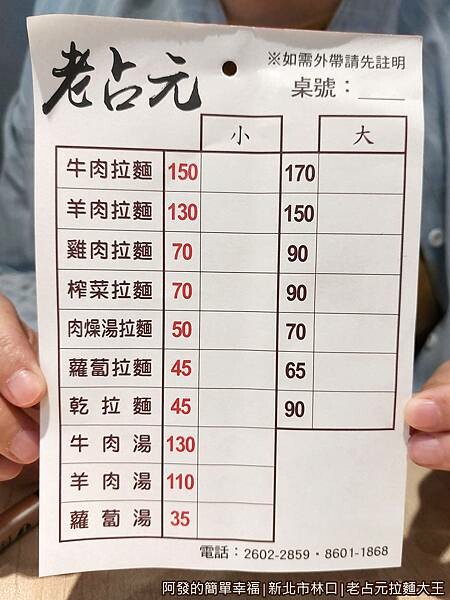 老占元
※如需外帶請先註明
桌號：____
小 大
牛肉拉麵 150 170
羊肉拉麵 130 150
雞肉拉麵 70 90
榨菜拉麵 70 90
肉燥湯拉麵 50 70
蘿蔔拉麵 45 65
乾拉麵 45 90
牛肉湯 130
羊肉湯 110
蘿蔔湯 35
電話：2602-2859・8601-1868
阿發的簡單幸福|新北市林口|老占元拉麵大王